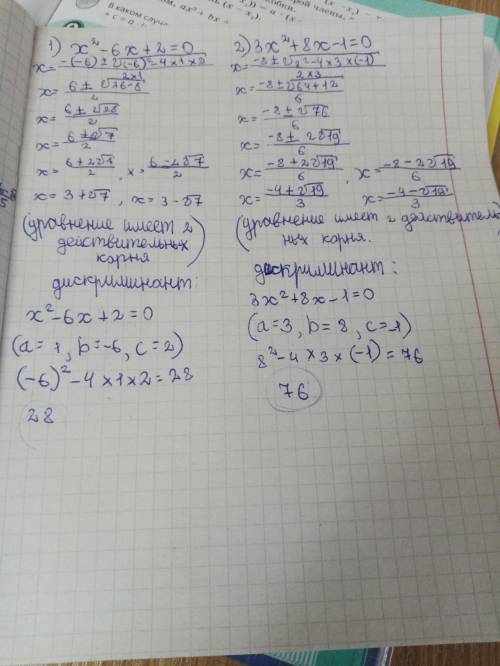 В каком случа
1) x²-6x+2=0
x= -(-6)±√(-6)²-4×1×2 / 2×1
x= 6±√36-8 / 2
x= 6±√28 / 2
x= 6±2√7 / 2
x= 6+2√7 / 2 , x= 6-2√7 / 2
x=3+√7 , x=3-√7
(уравнение имеет 2
действительных
корня)
дискриминант:
x²-6x+2=0
(a=1, b=-6, c=2)
(-6)²-4×1×2=28
28
2) 3x²+8x-1=0
x= -8±√8²-4×3×(-1) / 2×3
x= -8±√64+12 / 6
x= -8±√76 / 6
x= -8±2√19 / 6
x= -8+2√19 / 6 , x= -8-2√19 / 6
x= -4+√19 / 3 x= -4-√19 / 3
(уравнение имеет 2 действитель
ных корня.
дискриминант:
3x²+8x-1=0
(a=3, b=8, c=-1)
8²-4×3×(-1)=76
76